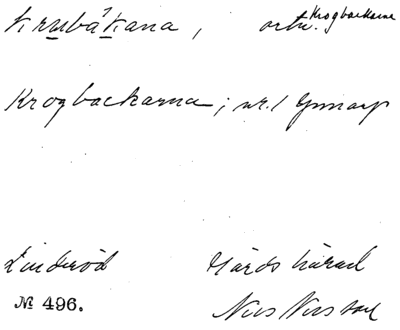 krubåkana, ortn. Krogbackarne
Krogbackarna; nr. 1 Gunnarp
Linderöd Gärds härad
№ 496. Nils Nilsson